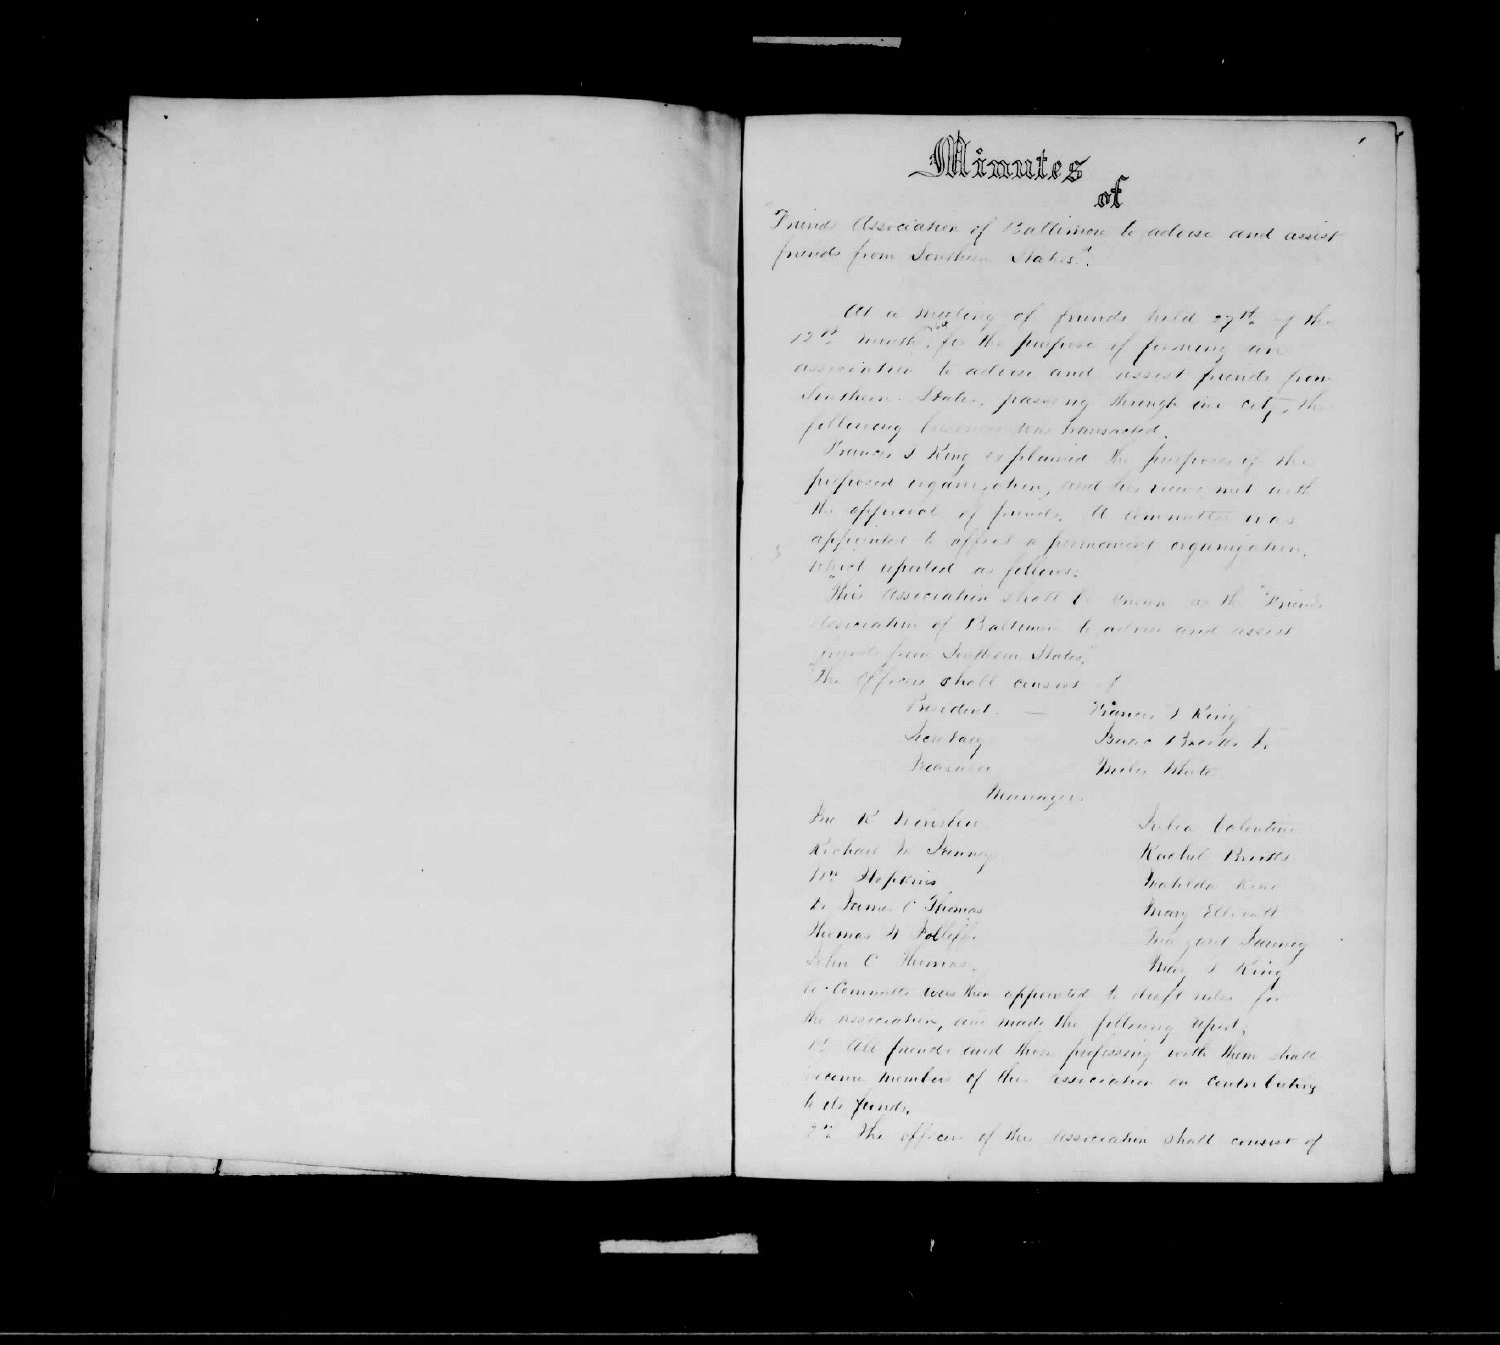 Minutes
of
"Friends Association of Baltimore to advise and assist
friends from Southern States".
At a meeting of friends held 27th of the
12th month, for the purpose of forming an
association to advise and assist friends from
Southern States, passing through our city, the
following business was transacted.
Francis T King explained the purposes of the
proposed organization, and his views met with
the approval of friends. A committee was
appointed to effect a permanent organization,
which reported as follows:
"This Association shall be known as the "Friends
Association of Baltimore to advise and assist
friends from Southern States."
The officers shall consist of
President — Francis T King
Secretary Isaac Brooks Jr
Treasurer Miles White
Managers
Jno R Winslow Julia Valentine
Richard M Janney Rachel Brooks
Wm Hopkins Matilda
Dr James C Thomas Mary Ellicott
Thomas W Jolliffe Margaret Janney
John C Thomas. Mary T King
A Committee was then appointed to draft rules for
the association, and made the following report:
1st All friends and those professing with them shall
become members of this association on contributing
to its funds.
2nd The officers of this association shall consist of